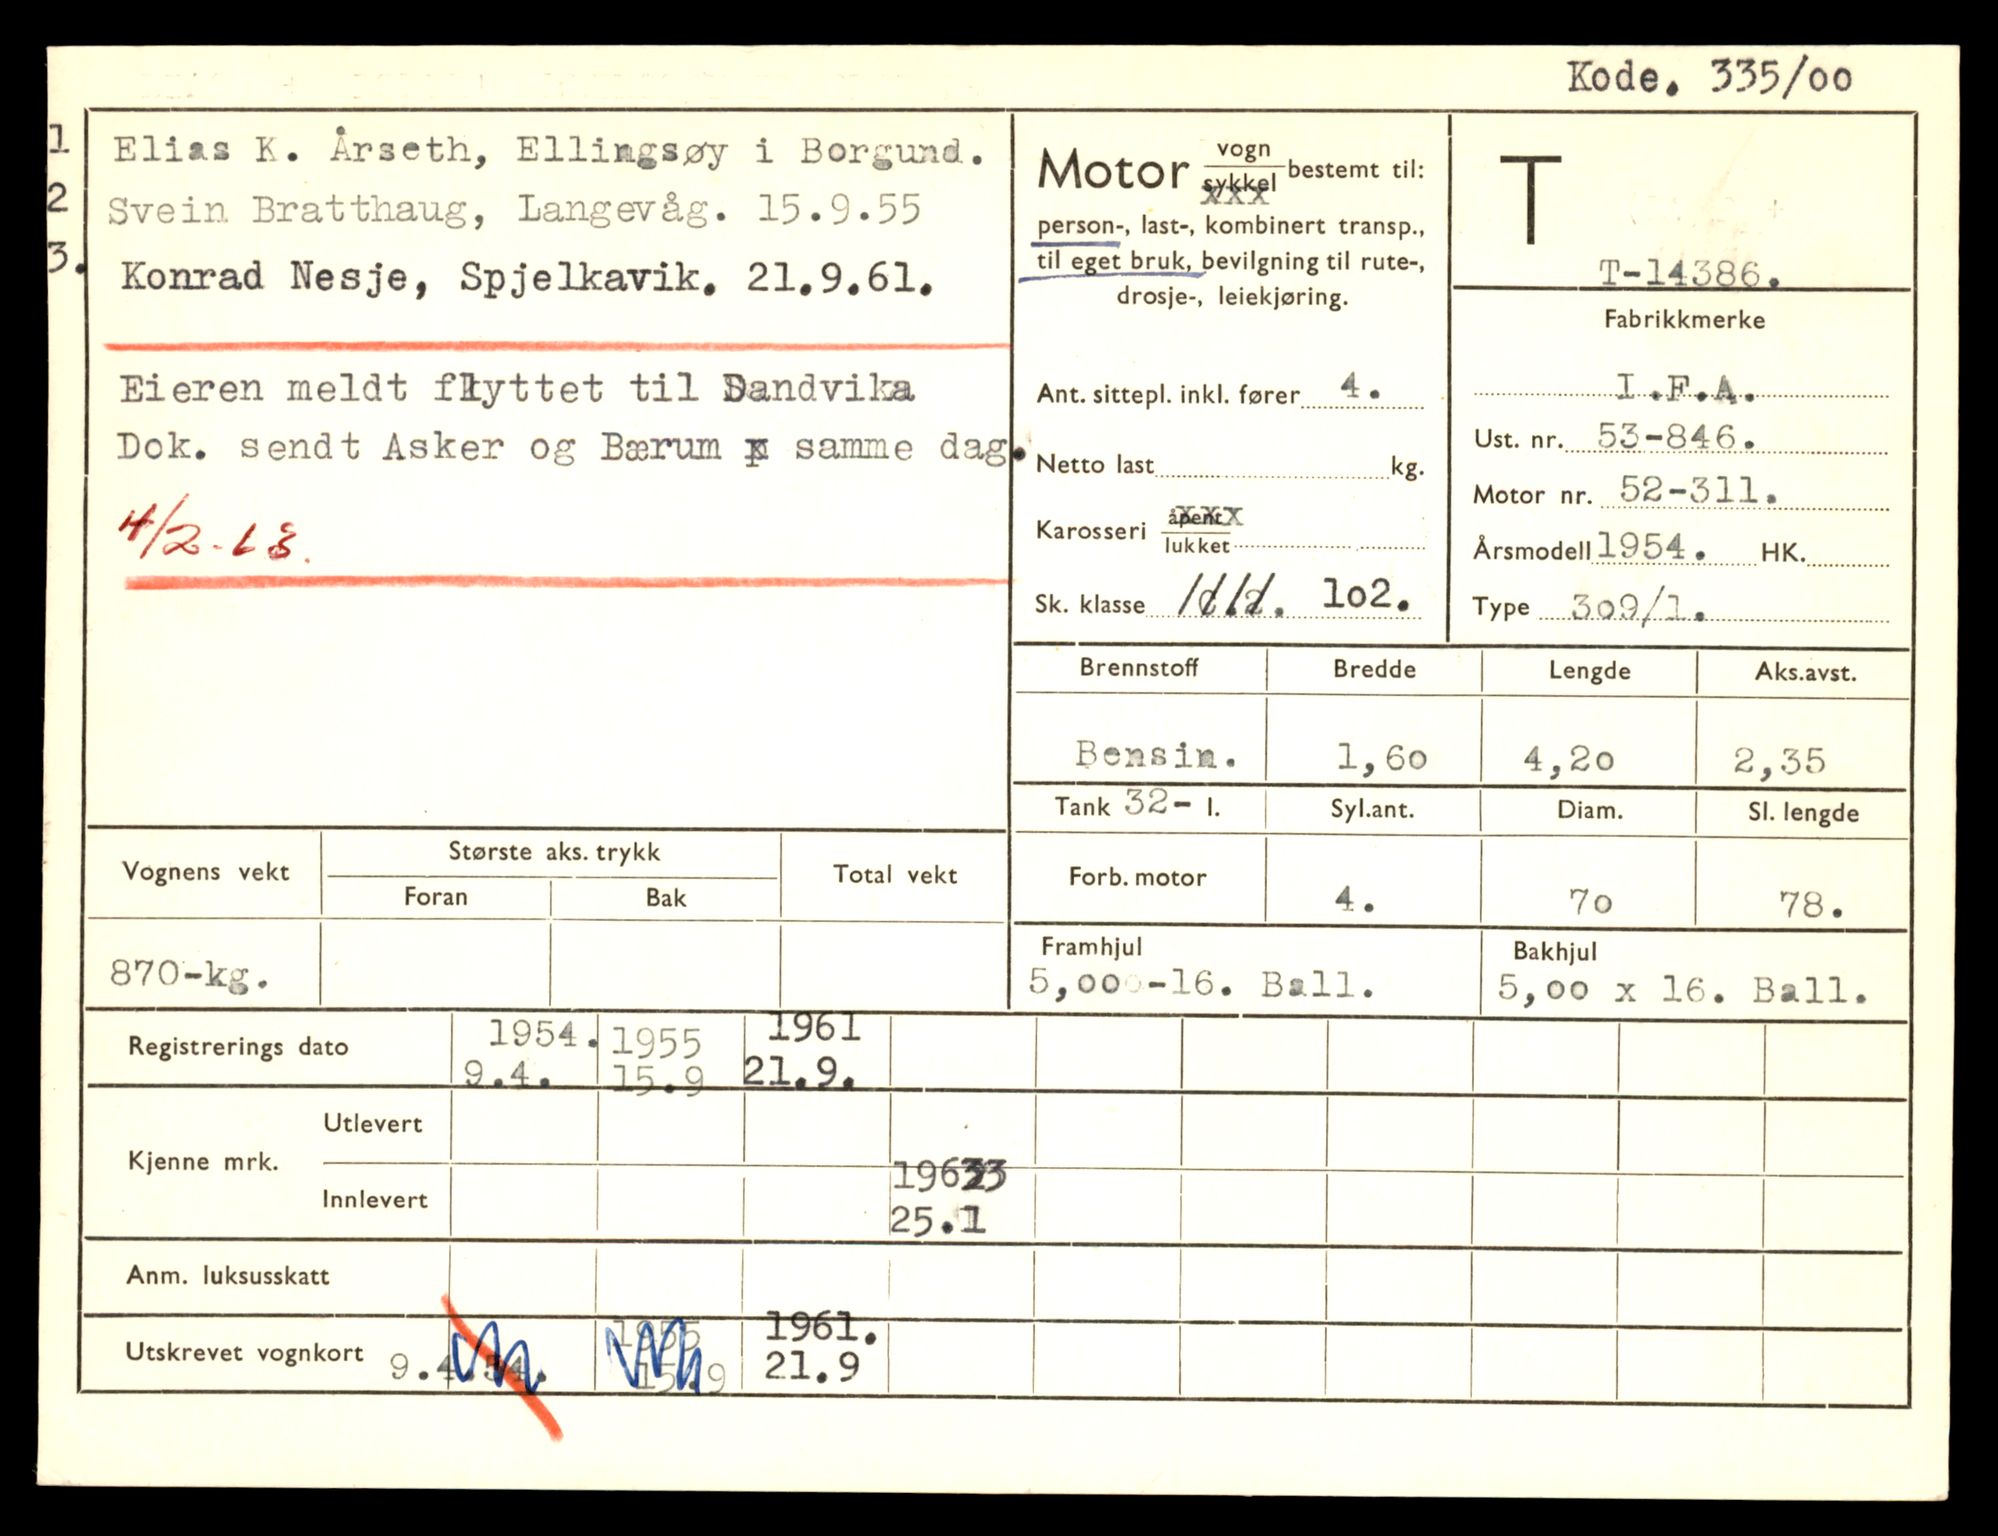 Kode. 335/oo
1 Elias K. Årseth, Ellingsøy i Borgund.
2 Svein Bratthaug, Langevåg. 15.9.55
3. Konrad Nesje, Spjelkavik. 21.9.61.
Eieren meldt flyttet til Sandvika
Dok. sendt Asker og Bærum x samme dag.
4/2-63.
Motor vogn
sykkel bestemt til:
xxx
person-, last-, kombinert transp.,
til eget bruk, bevilgning til rute-,
drosje-, leiekjøring.
Ant. sittepl. inkl. fører 4.
Netto last kg.
Karosseri åpent xxxx
lukket
Sk. klasse 1o2.
T
T-14386.
Fabrikkmerke
I.F.A.
Ust. nr. 53-846.
Motor nr. 52-311.
Årsmodell 1954. HK.
Type 3o9/1.
Brennstoff Bredde Lengde Aks.avst.
Bensin. 1,6o 4,2o 2,35
Tank 32- l. Syl.ant. Diam. Sl. lengde
Forb. motor 4. 7o 78.
Framhjul Bakhjul
5,oo -16. Ball. 5,oo x 16. Ball.
Vognens vekt Største aks. trykk Total vekt
Foran Bak
870-kg.
Registrerings dato 1954. 1955 1961
9.4. 15.9 21.9.
Kjenne mrk. Utlevert
Innlevert 1963
25.1
Anm. luksusskatt
Utskrevet vognkort 9.4.54. 1955 1961.
15.9 21.9